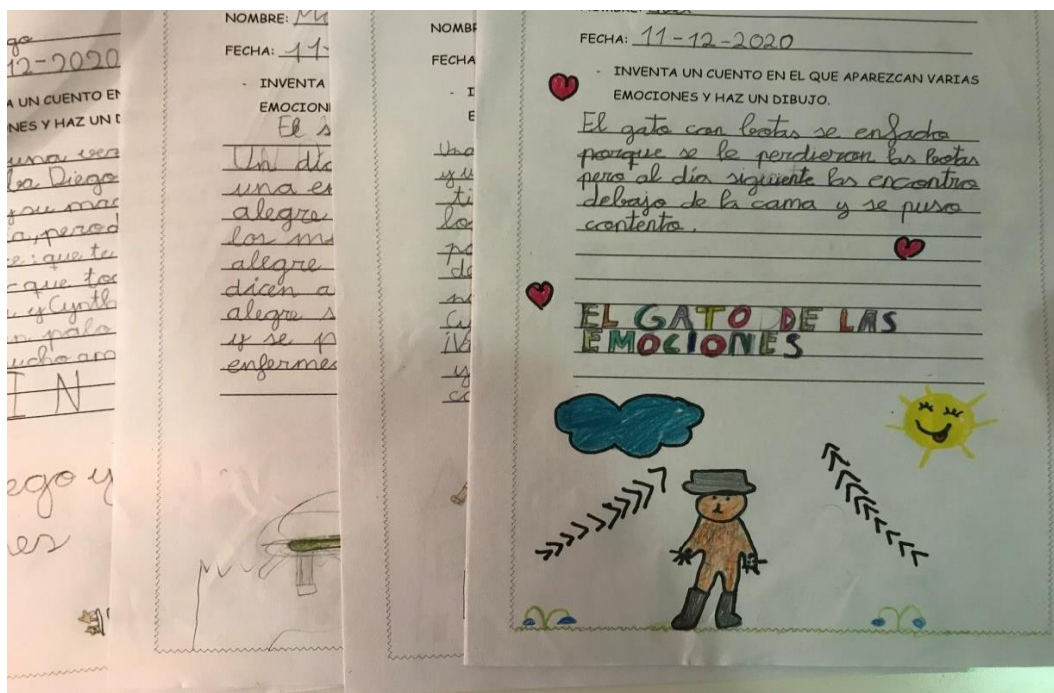 go
12-2020
A UN CUENTO EN
NES Y HAZ UN
una vez
Diego
y su
que te
que toc
y Cynth
palo
mucho am
I N
ego y
es
NOMBRE:
FECHA: 11-
- INVENTA
EMOCION
El s
Un día
una en
alegre
los m
alegre
dicen a
alegre s
y se p
enfermes
NOMBR
FECHA
- I
E
Una
y u
ti
lo
po
de
n
Cu
¡Va
y
co
FECHA: 11-12-2020
- INVENTA UN CUENTO EN EL QUE APAREZCAN VARIAS
EMOCIONES Y HAZ UN DIBUJO.
El gato con botas se enfado
porque se le perdieron las botas
pero al día siguiente las encontro
debajo de la cama y se puso
contento.
EL GATO DE LAS
EMOCIONES